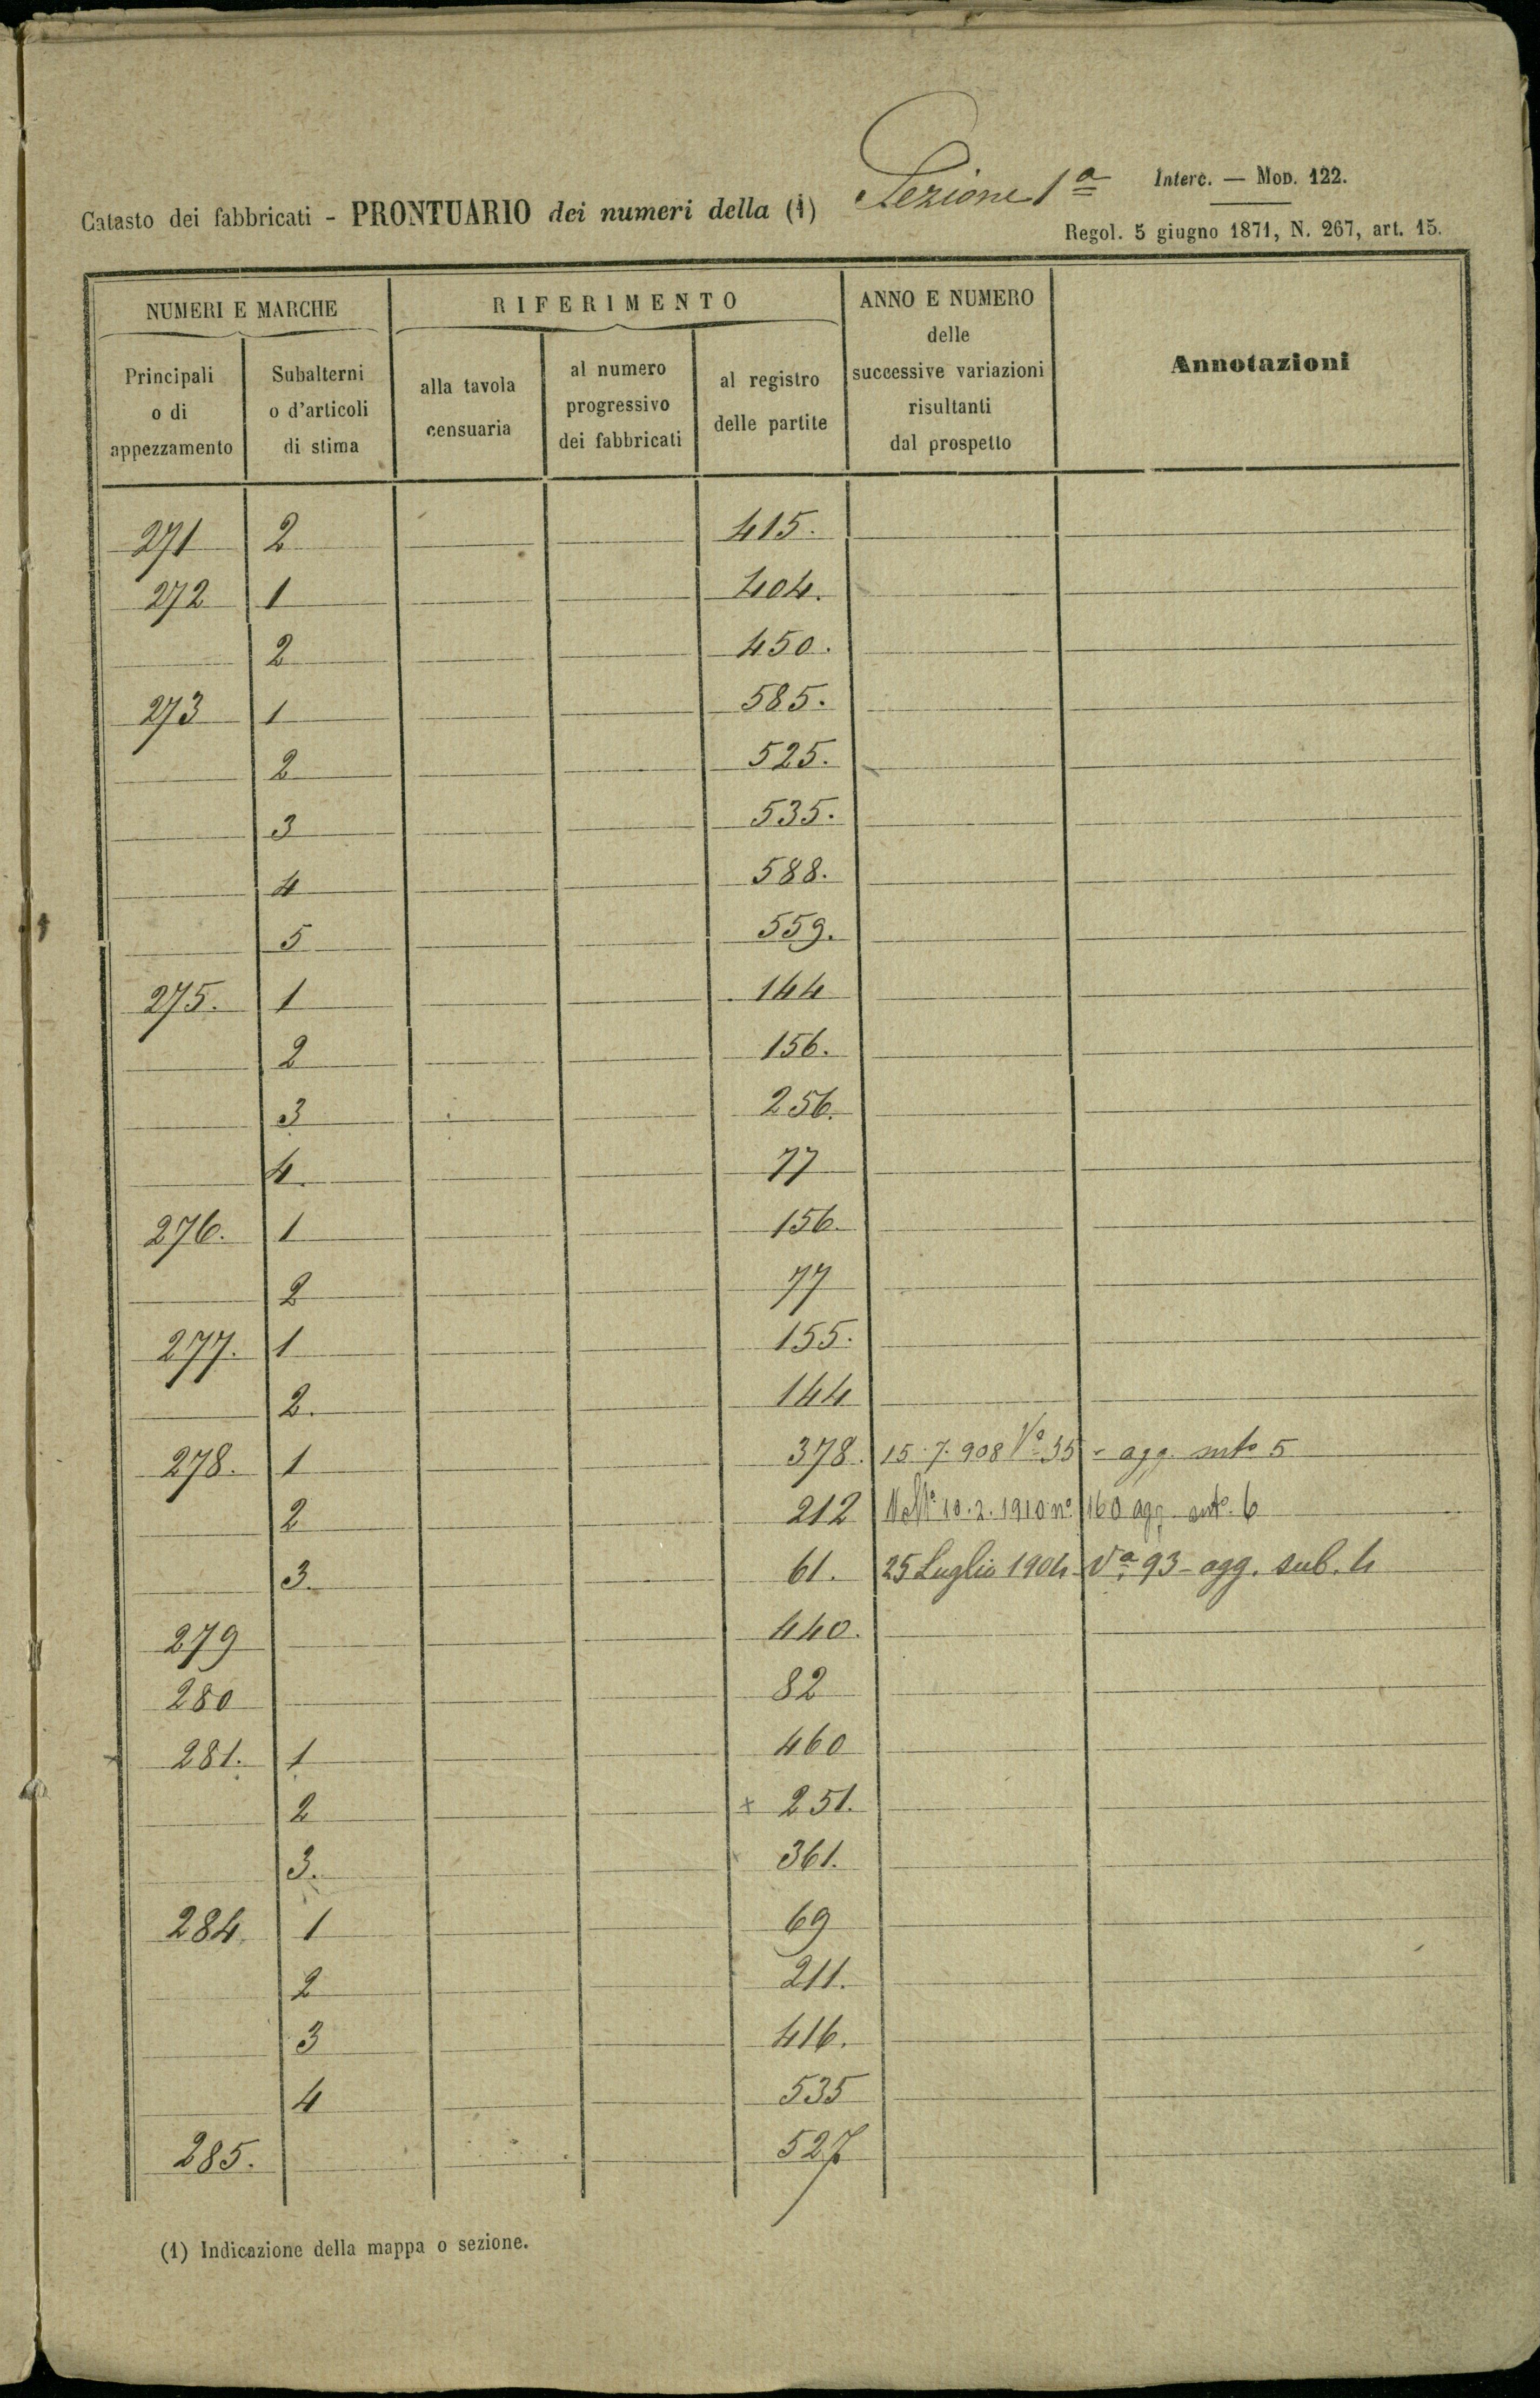 Sezione 1ª
Interc. — Mod. 122.
Catasto dei fabbricati - PRONTUARIO dei numeri della (1)
Regol. 5 giugno 1871, N. 267, art. 15.
NUMERI E MARCHE
RIFERIMENTO
ANNO E NUMERO
delle
successive variazioni
risultanti
dal prospetto
Annotazioni
Principali
o di
appezzamento
Subalterni
o d'articoli
di stima
alla tavola
censuaria
al numero
progressivo
dei fabbricati
al registro
delle partite
271 2 415.
272 1 404.
2 450.
273 1 585.
2 525.
3 535.
4 588.
5 559.
275. 1 144
2 156.
3 256.
4. 77
276. 1 156.
2 77
277. 1 155.
2. 144
278. 1 378. 15.7.908 Vª 35 - agg. 5
2 212 10.2.1910 nº 160 agg. 6
3. 61. 25 Luglio 1904 - Vª 93 - agg. sub. 4
279 440.
280 82
281. 1 460
2 x 251.
3. 361.
284. 1 69
2 211.
3 416.
4 535
285. 527
(1) Indicazione della mappa o sezione.